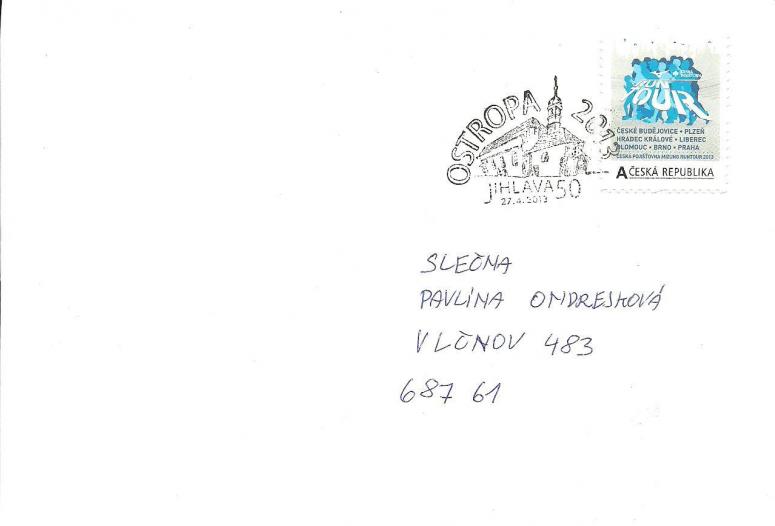 OSTROPA 2013
JIHLAVA 50
27.4.2013
RUN
TOUR
ČESKÉ BUDĚJOVICE • PLZEŇ
HRADEC KRÁLOVÉ • LIBEREC
OLOMOUC • BRNO • PRAHA
ČESKÁ POJIŠŤOVNA MIZUNO RUNTOUR 2013
A ČESKÁ REPUBLIKA
SLEČNA
PAVLÍNA ONDRESKOVÁ
VLČNOV 483
687 61